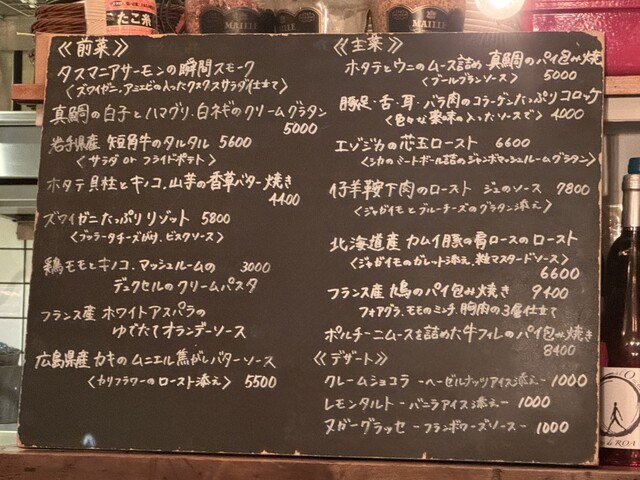 たこ糸
MAILLE
MAILLE
MAILLE
《前菜》
タスマニアサーモンの瞬間スモーク
〈ズワイガニ、アニエビの入ったクスクスサラダ仕立て〉
真鯛の白子とハマグリ、白ネギのクリームグラタン
5000
岩手県産 短角牛のタルタル 5600
〈サラダ or フライドポテト〉
ホタテ貝柱とキノコ、山芋の香草バター焼き
4400
ズワイガニたっぷりリゾット 5800
〈ブッラータチーズがけ、ビスクソース〉
鶏モモとキノコ、マッシュルームの 3000
デュクセルのクリームパスタ
フランス産 ホワイトアスパラの
ゆでたてオランデーソース
広島県産 カキのムニエル 焦がしバターソース
〈カリフラワーのロースト添え〉 5500
《主菜》
ホタテとウニのムース詰め 真鯛のパイ包み焼
〈ブールブランソース〉 5000
豚足・舌・耳・バラ肉のコラーゲンたっぷりコロッケ
〈色々な薬味の入ったソースで〉 4000
エゾジカの芯玉ロースト 6600
〈シカのミートボール詰のジャンボマッシュルームグラタン〉
仔羊鞍下肉のロースト ジュのソース 7800
〈ジャガイモとブルーチーズのグラタン添え〉
北海道産 カムイ豚の肩ロースのロースト
〈ジャガイモのガレット添え、粒マスタードソース〉
6600
フランス産 鳩のパイ包み焼き 9400
フォアグラ、モモのミンチ、胸肉の3層仕立て
ポルチーニムースを詰めた牛フィレのパイ包み焼き
8400
《デザート》
クレームショコラ -ヘーゼルナッツアイス添え- 1000
レモンタルト -バニラアイス添え- 1000
ヌガーグラッセ -フランボワーズソース- 1000